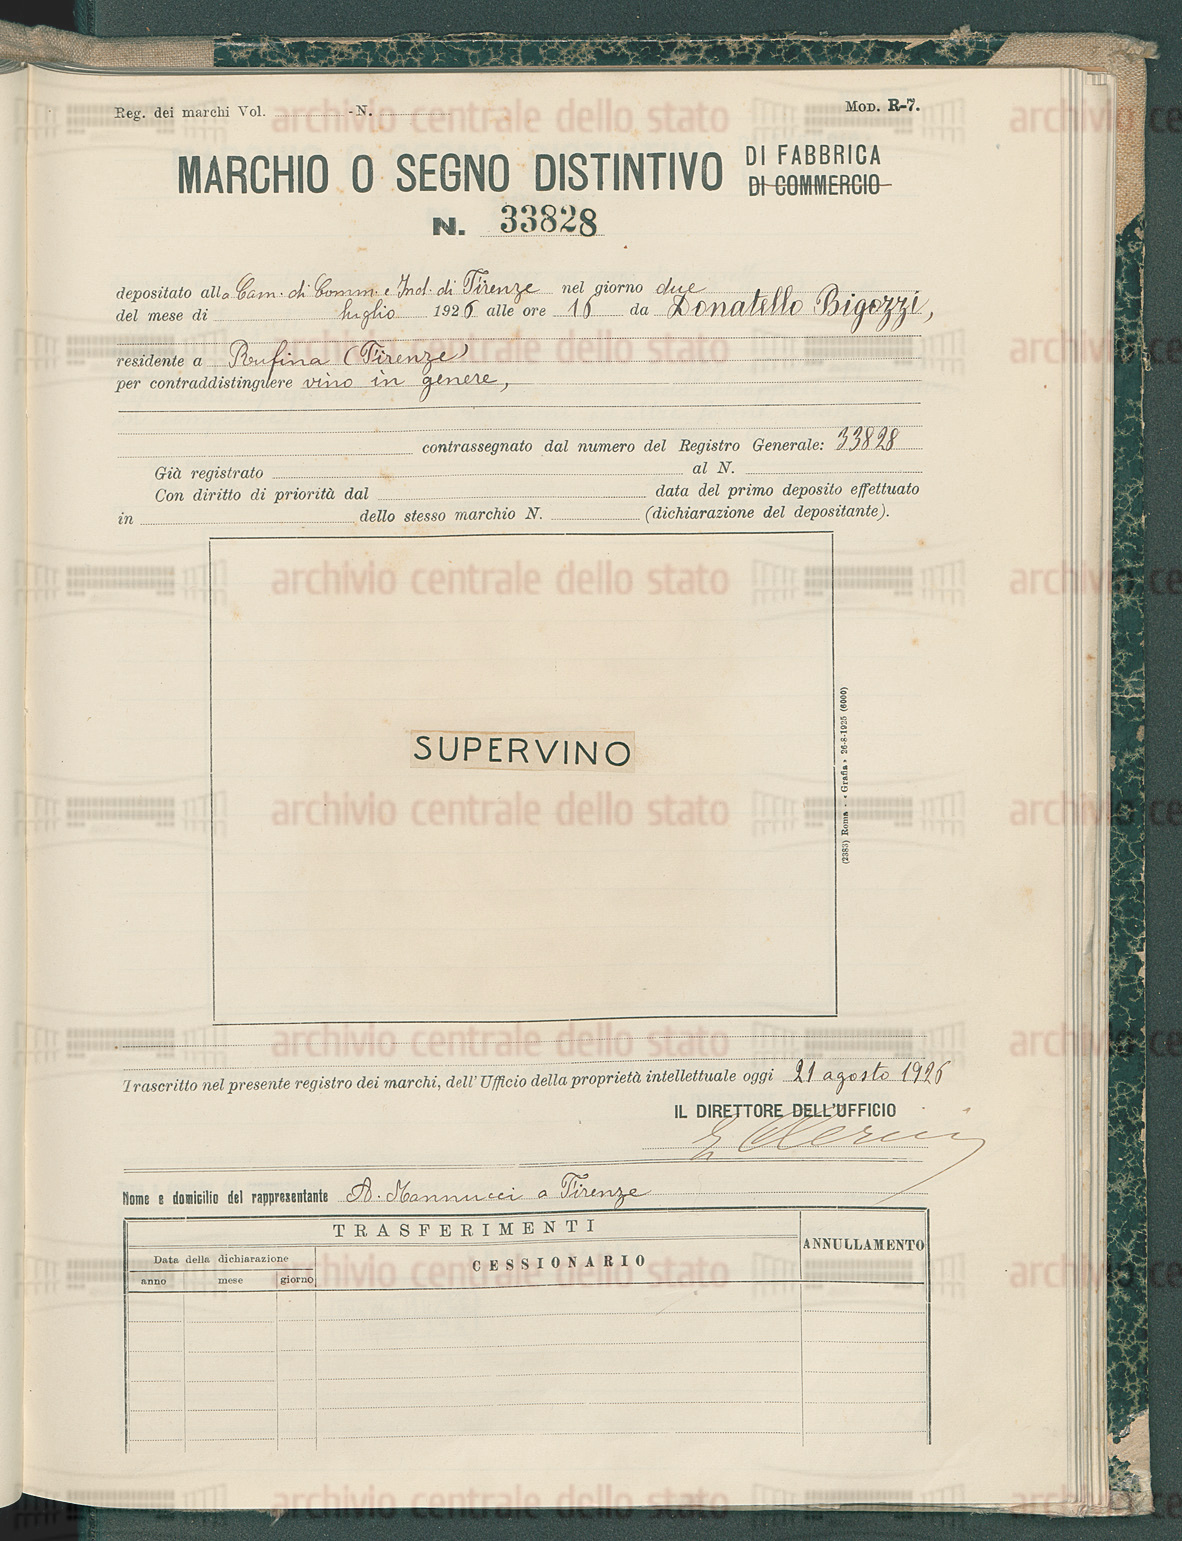 Reg. dei marchi Vol. - N.
MOD. R-7.
MARCHIO O SEGNO DISTINTIVO DI FABBRICA
DI COMMERCIO
N. 33828
depositato alla Cam. di Comm. e Ind. di Firenze nel giorno due
del mese di luglio 1926 alle ore 16 da Donatello Bigozzi,
residente a Rufina (Firenze)
per contraddistinguere vino in genere,
contrassegnato dal numero del Registro Generale: 33828
Già registrato al N.
Con diritto di priorità dal data del primo deposito effettuato
in dello stesso marchio N. (dichiarazione del depositante).
SUPERVINO
(2383) Roma - « Grafia » 26-8-1925 (6000)
Trascritto nel presente registro dei marchi, dell'Ufficio della proprietà intellettuale oggi 21 agosto 1926
IL DIRETTORE DELL'UFFICIO
Nome e domicilio del rappresentante A. Mannucci a Firenze
TRASFERIMENTI
ANNULLAMENTO
Data della dichiarazione
CESSIONARIO
anno mese giorno
archivio centrale dello stato